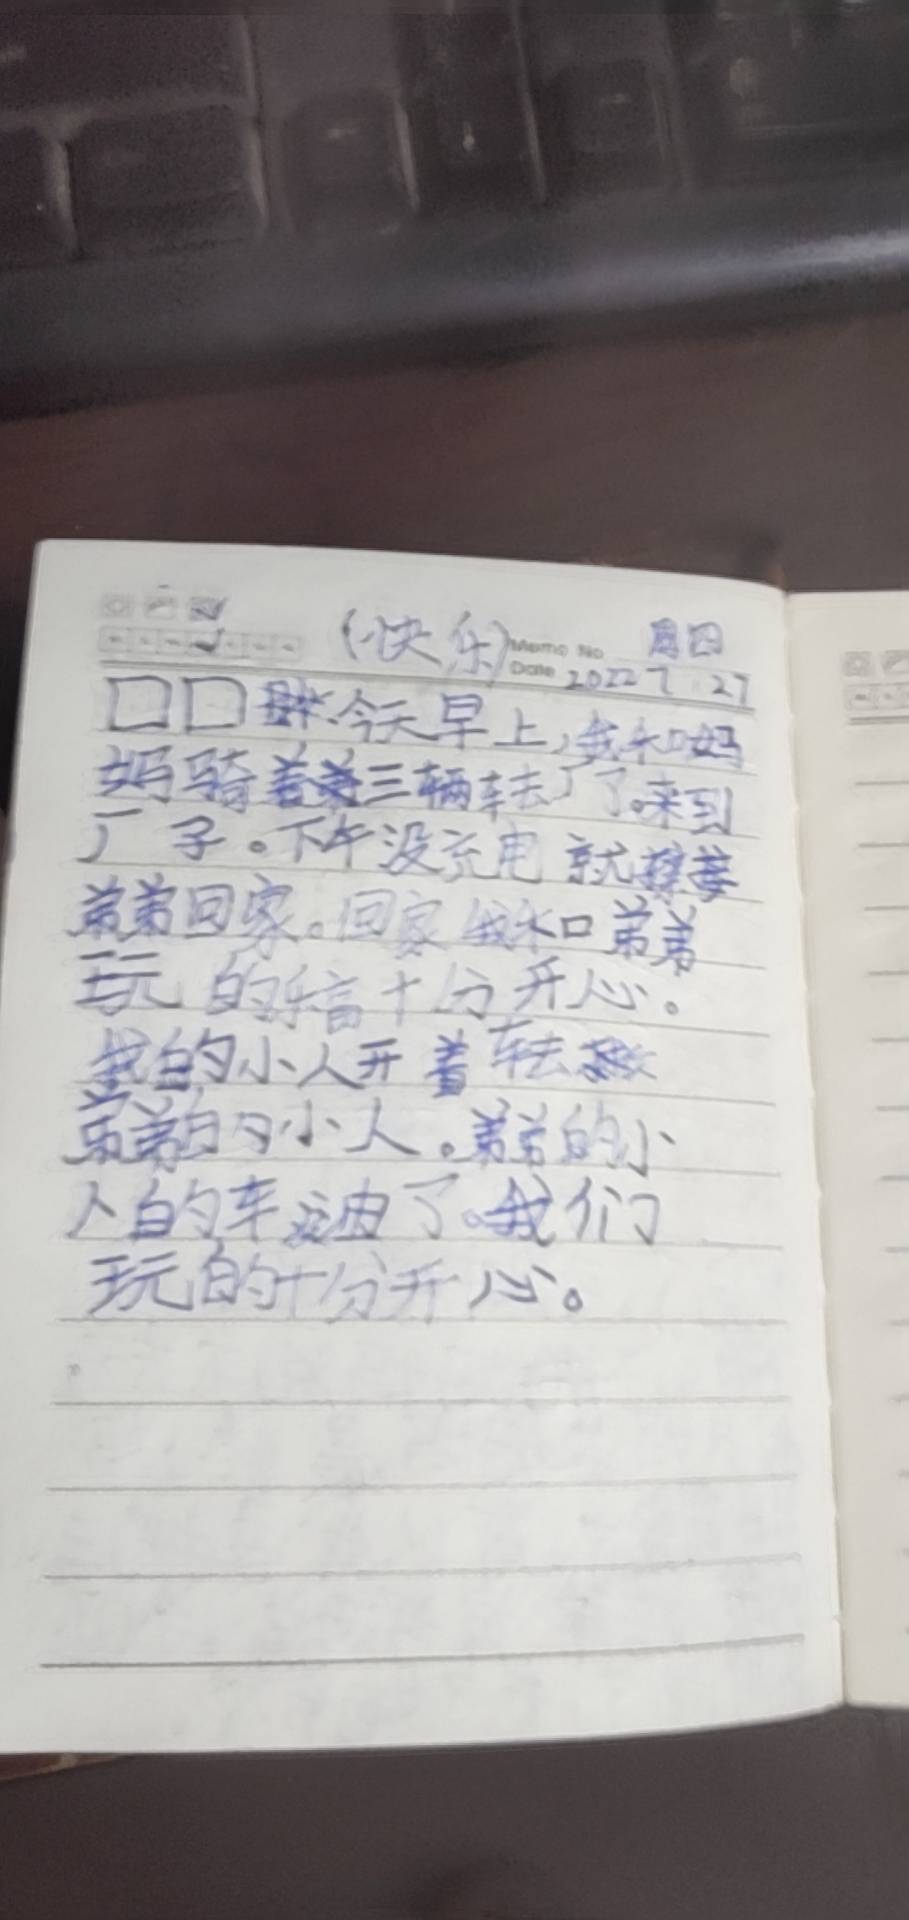 (快乐) Memo No 周四
Date 2022 7 27
口口 今天早上,我和妈
妈骑着三辆车去厂了。来到
厂子。下午没充电就接
弟弟回家。回家我和口弟弟
玩的十分开心。
我的小人开着车去
弟弟的小人。弟弟的小
人的车油了。我们
玩的十分开心。